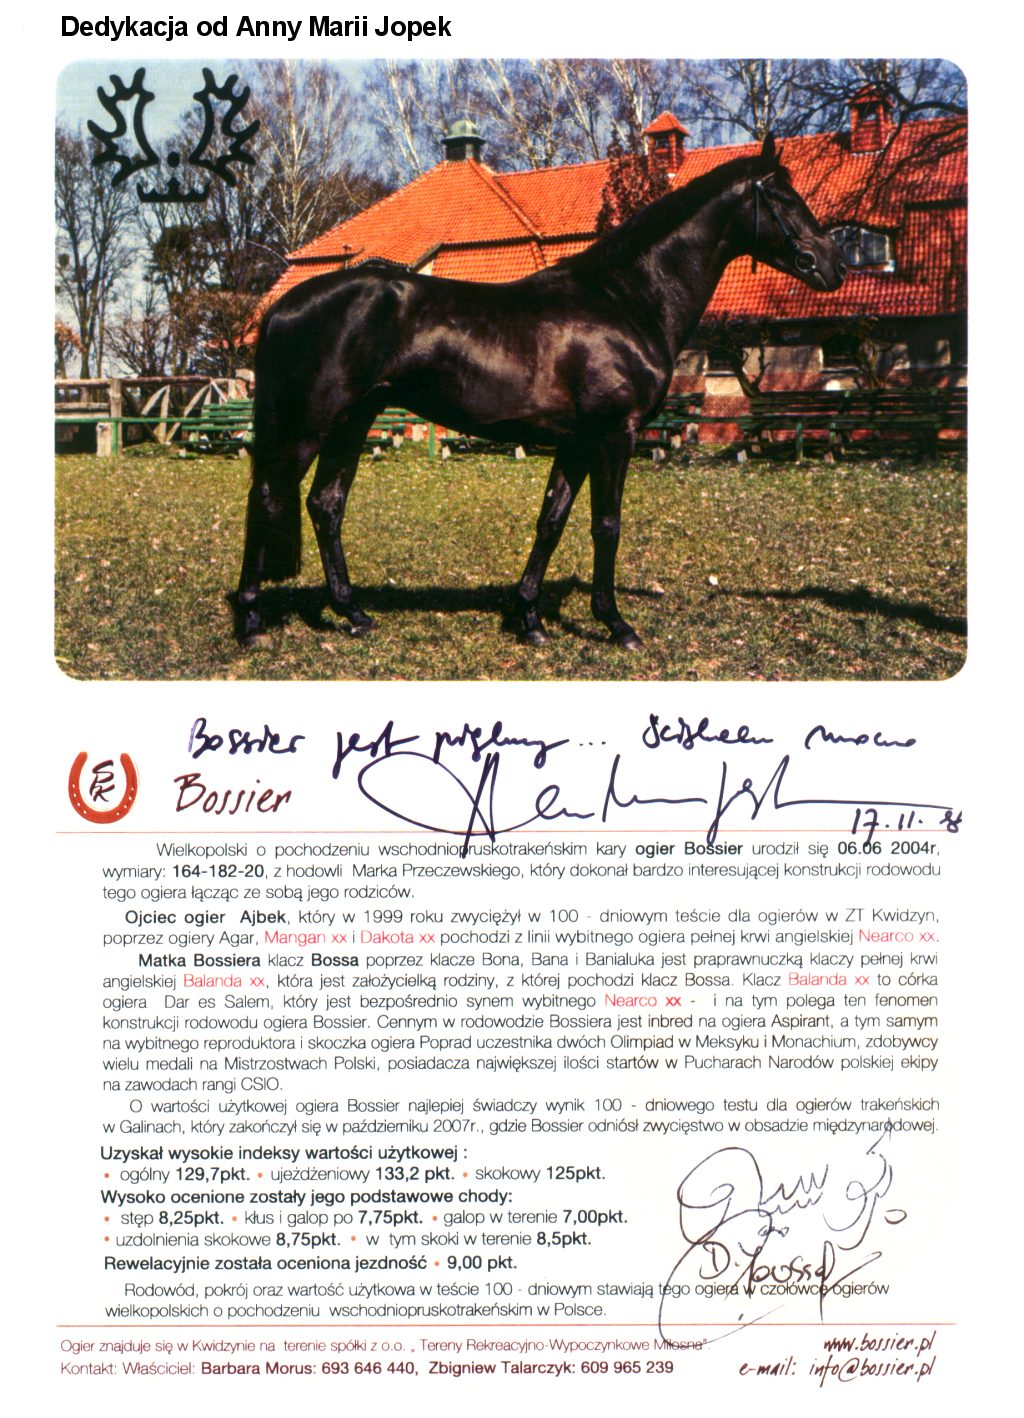 Dedykacja od Anny Marii Jopek
Bossier jest piękny... Ściskam mocno
SK
Bossier
17.11.
Wielkopolski o pochodzeniu wschodniopruskotrakeńskim kary ogier Bossier urodził się 06.06 2004r,
wymiary: 164-182-20, z hodowli Marka Przeczewskiego, który dokonał bardzo interesującej konstrukcji rodowodu
tego ogiera łącząc ze sobą jego rodziców.
Ojciec ogier Ajbek, który w 1999 roku zwyciężył w 100 - dniowym teście dla ogierów w ZT Kwidzyn,
poprzez ogiery Agar, Mangan xx i Dakota xx pochodzi z linii wybitnego ogiera pełnej krwi angielskiej Nearco xx.
Matka Bossiera klacz Bossa poprzez klacze Bona, Bana i Banialuka jest praprawnuczką klaczy pełnej krwi
angielskiej Balanda xx, która jest założycielką rodziny, z której pochodzi klacz Bossa. Klacz Balanda xx to córka
ogiera Dar es Salem, który jest bezpośrednio synem wybitnego Nearco xx - i na tym polega ten fenomen
konstrukcji rodowodu ogiera Bossier. Cennym w rodowodzie Bossiera jest inbred na ogiera Aspirant, a tym samym
na wybitnego reproduktora i skoczka ogiera Poprad uczestnika dwóch Olimpiad w Meksyku i Monachium, zdobywcy
wielu medali na Mistrzostwach Polski, posiadacza największej ilości startów w Pucharach Narodów polskiej ekipy
na zawodach rangi CSIO.
O wartości użytkowej ogiera Bossier najlepiej świadczy wynik 100 - dniowego testu dla ogierów trakeńskich
w Galinach, który zakończył się w październiku 2007r., gdzie Bossier odniósł zwycięstwo w obsadzie międzynarodowej.
Uzyskał wysokie indeksy wartości użytkowej :
• ogólny 129,7pkt. • ujeżdżeniowy 133,2 pkt. • skokowy 125pkt.
Wysoko ocenione zostały jego podstawowe chody:
• stęp 8,25pkt. • kłus i galop po 7,75pkt. • galop w terenie 7,00pkt.
• uzdolnienia skokowe 8,75pkt. • w tym skoki w terenie 8,5pkt.
Rewelacyjnie została oceniona jezdność • 9,00 pkt.
Rodowód, pokrój oraz wartość użytkowa w teście 100 - dniowym stawiają tego ogiera w czołówce ogierów
wielkopolskich o pochodzeniu wschodniopruskotrakeńskim w Polsce.
Ogier znajduje się w Kwidzynie na terenie spółki z o.o. „ Tereny Rekreacyjno-Wypoczynkowe Miłosna".
www.bossier.pl
Kontakt: Właściciel: Barbara Morus: 693 646 440, Zbigniew Talarczyk: 609 965 239
e-mail: info@bossier.pl